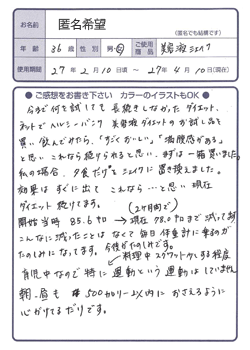 お名前 匿名希望
(匿名でも結構です)
年齢 36歳 性別 男・女 ご使用商品 美容液シェイク
使用期間 27年2月10日頃 ～ 27年4月10日(現在)
●ご感想をお書き下さい カラーのイラストもOK●
今まで何を試しても長続きしなかったダイエット。
ネットでヘルシーバンク 美容液ダイエットのお試し品を
買い飲んでみたら、「すごくおいしい」「満腹感がある」
と思い これなら続けられると思い、まずは一箱買いました。
私の場合、夕食だけをシェイクに置き換えました。
効果はすぐに出て これなら…と思い現在
ダイエット続けてます。
(2ヶ月間で)
開始当時 85.6㌔ → 現在78.0㌔まで減ってます
こんなに減ったことはなくて毎日体重計に乗るのが
たのしみになってます。今後がたのしみです。
料理中スクワットからする程度
育児中なので特に運動という運動はしていません
朝・昼も 500カロリー以内におさえるように
心がけてるだけです。